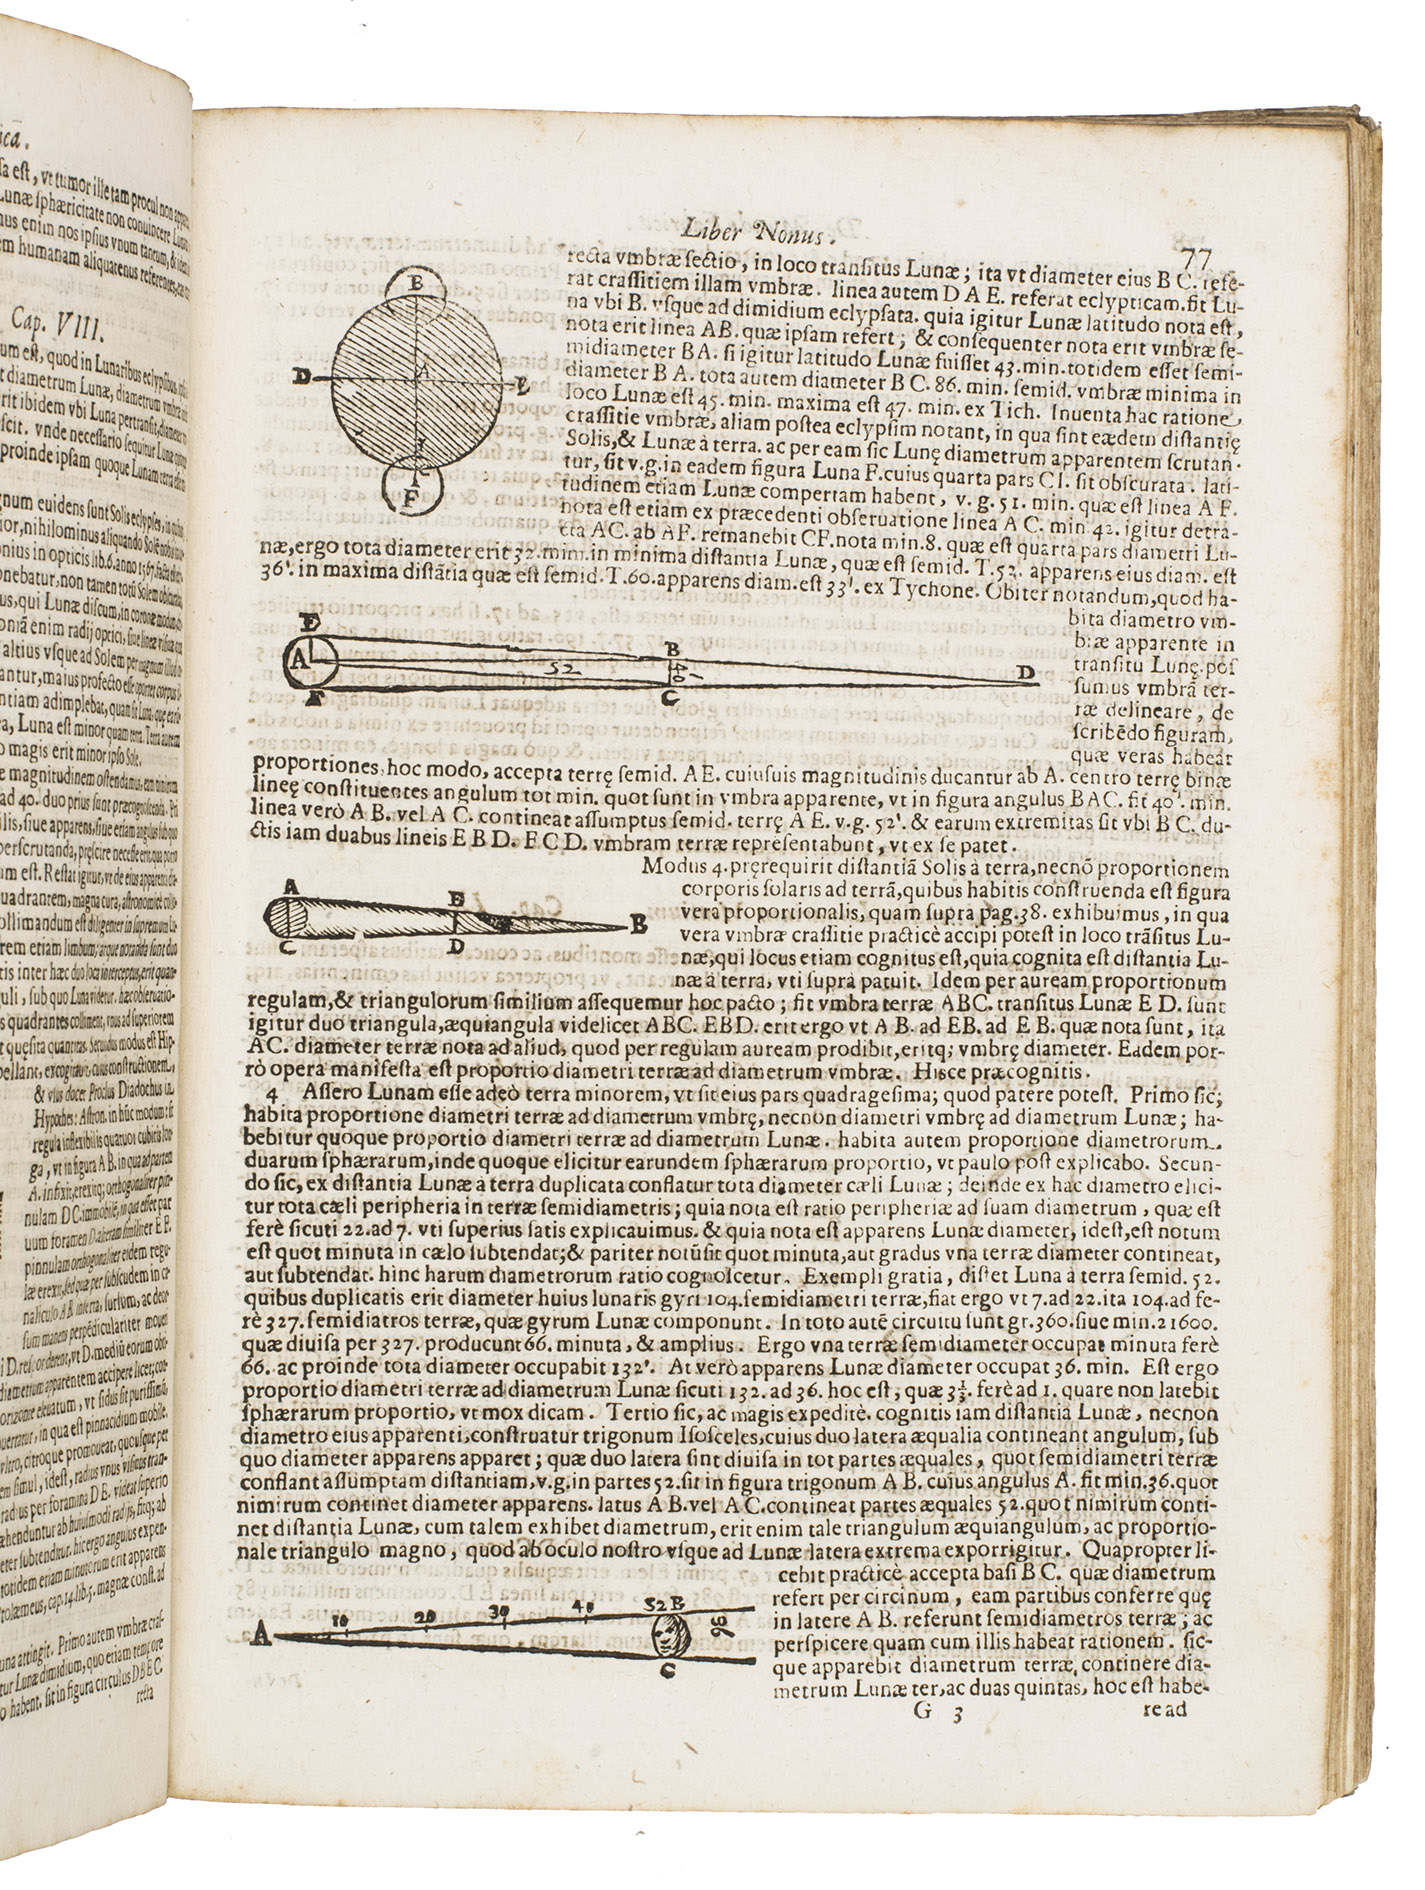 ica.
sa est, vt tumor ille tam procul non
Lunæ sphæricitate non conuincere
enim nos ipsius vnum tantum, &
humanam aliquatenus referentes,
Cap. VIII.
um est, quod in Lunaribus eclypsibus
diametrum Lunæ, diametrum vmbræ
rit ibidem vbi Luna pertransit,
scit. vnde necessario sequitur
proinde ipsam quoque Lunam terra
gnum euidens sunt Solis eclypses,
ior, nihilominus aliquando Solē
onius in opticis lib. 6. anno 1567.
onebatur, non tamen totū Solem
us, qui Lunæ discum, in coronæ modum
oniā enim radij optici, siue lineæ
altius vsque ad Solem per magnum
antur, maius profecto esse oportet corpus
ntiam adimplebat, quam sit Luna,
a, Luna est minor quam terra. Terra autem
o magis erit minor ipso Sole.
e magnitudinem ostendamus, eam
ad 40. duo prius sunt præcognoscenda.
ilis, siue apparens, siue etiam angulus sub quo
perscrutanda, pręscire necesse erit
um est. Restat igitur, vt de eius apparenti
quadrantem, magna cura, astronomicè
ollimandum est diligenter in supremum
rem etiam limbum; atque notanda sunt duo
tis inter hæc duo loca interceptus, erit
guli, sub quo Luna videtur. hæc
s quadrantes colliment, vnus ad superiorem
t quęsita quantitas. Secundus modus est Hip-
pellant, excogitatus; cuius constructionem,
& vsus docet Proclus Diadochus in
Hypothes: Astron. in hūc modum: sit
regula inflexibilis quatuor cubitis lon-
ga, vt in figura A B. in qua ad partem
A. infixit, erexitq; orthogonaliter pin-
nulam D C. immobilē, in qua esset par
uum foramen D. alteram similiter E F.
pinnulam orthogonaliter eidem regu-
læ erexit, sed quæ per subscudem in ca-
naliculo A B. interea, sursum, ac deor-
sum manens perpēdiculariter moueri
diametrum apparentem accipere licet,
orizonte eleuatum, vt sidus sit purissimū,
uertatur, in qua est pinnacidium mobile,
vltro, citroque promoueat, quousque per
em simul, idest, radius vnus visiuus tran-
radius per foramina D E. videat superio
ehenduntur ab huiusmodi radijs, sitq; ab
eter subtenditur. hic ergo angulus expen-
totidem etiam minutorum erit apparens
Ptolæmeus, cap. 14. lib. 5. magnæ const. ad
una attingit. Primo autem vmbræ cras-
tur Lunæ dimidium, quo etiam tempore
o habent. sit in figura circulus D B E C.
recta
Liber Nonus. 77
recta vmbræ sectio, in loco transitus Lunæ; ita vt diameter eius B C. refe-
rat crassitiem illam vmbræ. linea autem D A E. referat eclypticam. sit Lu-
na vbi B. vsque ad dimidium eclypsata. quia igitur Lunæ latitudo nota est,
nota erit linea A B. quæ ipsam refert; & consequenter nota erit vmbræ se-
midiameter B A. si igitur latitudo Lunæ fuisset 43. min. totidem esset semi-
diameter B A. tota autem diameter B C. 86. min. semid. vmbræ minima in
loco Lunæ est 45. min. maxima est 47. min. ex Tich. Inuenta hac ratione
crassitie vmbræ, aliam postea eclypsim notant, in qua sint eædem distantię
Solis, & Lunæ à terra. ac per eam sic Lunę diametrum apparentem scrutan-
tur, sit v. g. in eadem figura Luna F. cuius quarta pars C I. sit obscurata. lati-
tudinem etiam Lunæ compertam habent, v. g. 51. min. quæ est linea A F.
nota est etiam ex præcedenti obseruatione linea A C. min. 42. igitur detra-
cta A C. ab A F. remanebit C F. nota min. 8. quæ est quarta pars diametri Lu-
næ, ergo tota diameter erit 32. min. in minima distantia Lunæ, quæ est semid. T. 52. apparens eius diam. est
36'. in maxima distātia quæ est semid. T. 60. apparens diam. est 33'. ex Tychone. Obiter notandum, quod ha-
bita diametro vm-
bræ apparente in
transitu Lunę, pos
sumus vmbrā ter-
ræ delineare, de
scribēdo figuram,
quæ veras habeat
proportiones, hoc modo, accepta terrę semid. A E. cuiusuis magnitudinis ducantur ab A. centro terrę binæ
lineę constituentes angulum tot min. quot sunt in vmbra apparente, vt in figura angulus B A C. fit 40'. min.
linea verò A B. vel A C. contineat assumptus semid. terrę A E. v. g. 52'. & earum extremitas sit vbi B C. du-
ctis iam duabus lineis E B D. F C D. vmbram terræ repręsentabunt, vt ex se patet.
Modus 4. pręrequirit distantiā Solis à terra, necnō proportionem
corporis solaris ad terrā, quibus habitis construenda est figura
vera proportionalis, quam supra pag. 38. exhibuimus, in qua
vera vmbræ crassitie practicè accipi potest in loco trāsitus Lu-
næ, qui locus etiam cognitus est, quia cognita est distantia Lu-
næ à terra, vti suprà patuit. Idem per auream proportionum
regulam, & triangulorum similium assequemur hoc pacto; sit vmbra terræ A B C. transitus Lunæ E D. sunt
igitur duo triangula, æquiangula videlicet A B C. E B D. erit ergo vt A B. ad E B. ad E B. quæ nota sunt, ita
A C. diameter terræ nota ad aliud, quod per regulam auream prodibit, eritq; vmbrę diameter. Eadem por-
rò opera manifesta est proportio diametri terræ ad diametrum vmbræ. Hisce præcognitis.
4 Assero Lunam esse adeò terra minorem, vt sit eius pars quadragesima; quod patere potest. Primo sic;
habita proportione diametri terræ ad diametrum vmbrę, necnon diametri vmbrę ad diametrum Lunæ; ha-
bebitur quoque proportio diametri terræ ad diametrum Lunæ. habita autem proportione diametrorum
duarum sphærarum, inde quoque elicitur earundem sphærarum proportio, vt paulo post explicabo. Secun-
do sic, ex distantia Lunæ à terra duplicata conflatur tota diameter cæli Lunæ; deinde ex hac diametro elici-
tur tota cæli peripheria in terræ semidiametris; quia nota est ratio peripheriæ ad suam diametrum, quæ est
ferè sicuti 22. ad 7. vti superius satis explicauimus. & quia nota est apparens Lunæ diameter, idest, est notum
est quot minuta in cælo subtendat; & pariter notū sit quot minuta, aut gradus vna terræ diameter contineat,
aut subtendat. hinc harum diametrorum ratio cognoscetur. Exempli gratia, distet Luna à terra semid. 52.
quibus duplicatis erit diameter huius lunaris gyri 104. semidiametri terræ, fiat ergo vt 7. ad 22. ita 104. ad fe-
rè 327. semidiatros terræ, quæ gyrum Lunæ componunt. In toto autē circuitu sunt gr. 360. siue min. 21600.
quæ diuisa per 327. producunt 66. minuta, & amplius. Ergo vna terræ semidiameter occupat minuta ferè
66. ac proinde tota diameter occupabit 132'. At verò apparens Lunæ diameter occupat 36. min. Est ergo
proportio diametri terræ ad diametrum Lunæ sicuti 132. ad 36. hoc est, quæ 3⅔. ferè ad 1. quare non latebit
sphærarum proportio, vt mox dicam. Tertio sic, ac magis expeditè. cognitis iam distantia Lunæ, necnon
diametro eius apparenti, construatur trigonum Isosceles, cuius duo latera æqualia contineant angulum, sub
quo diameter apparens apparet; quæ duo latera sint diuisa in tot partes æquales, quot semidiametri terræ
conflant assumptam distantiam, v. g. in partes 52. sit in figura trigonum A B. cuius angulus A. sit min. 36. quot
nimirum continet diameter apparens. latus A B. vel A C. contineat partes æquales 52. quot nimirum conti-
net distantia Lunæ, cum talem exhibet diametrum, erit enim tale triangulum æquiangulum, ac proportio-
nale triangulo magno, quod ab oculo nostro vsque ad Lunæ latera extrema exporrigitur. Quapropter li-
cebit practicè accepta basi B C. quæ diametrum
refert per circinum, eam partibus conferre quę
in latere A B. referunt semidiametros terræ; ac
perspicere quam cum illis habeat rationem. sic-
que apparebit diametrum terræ, continere dia-
metrum Lunæ ter, ac duas quintas, hoc est habe-
G 3 read
B
D A E
I
F
E
A B
52 40 D
F C
A E
B
C D
A 10 20 30 40 52 B
36
C